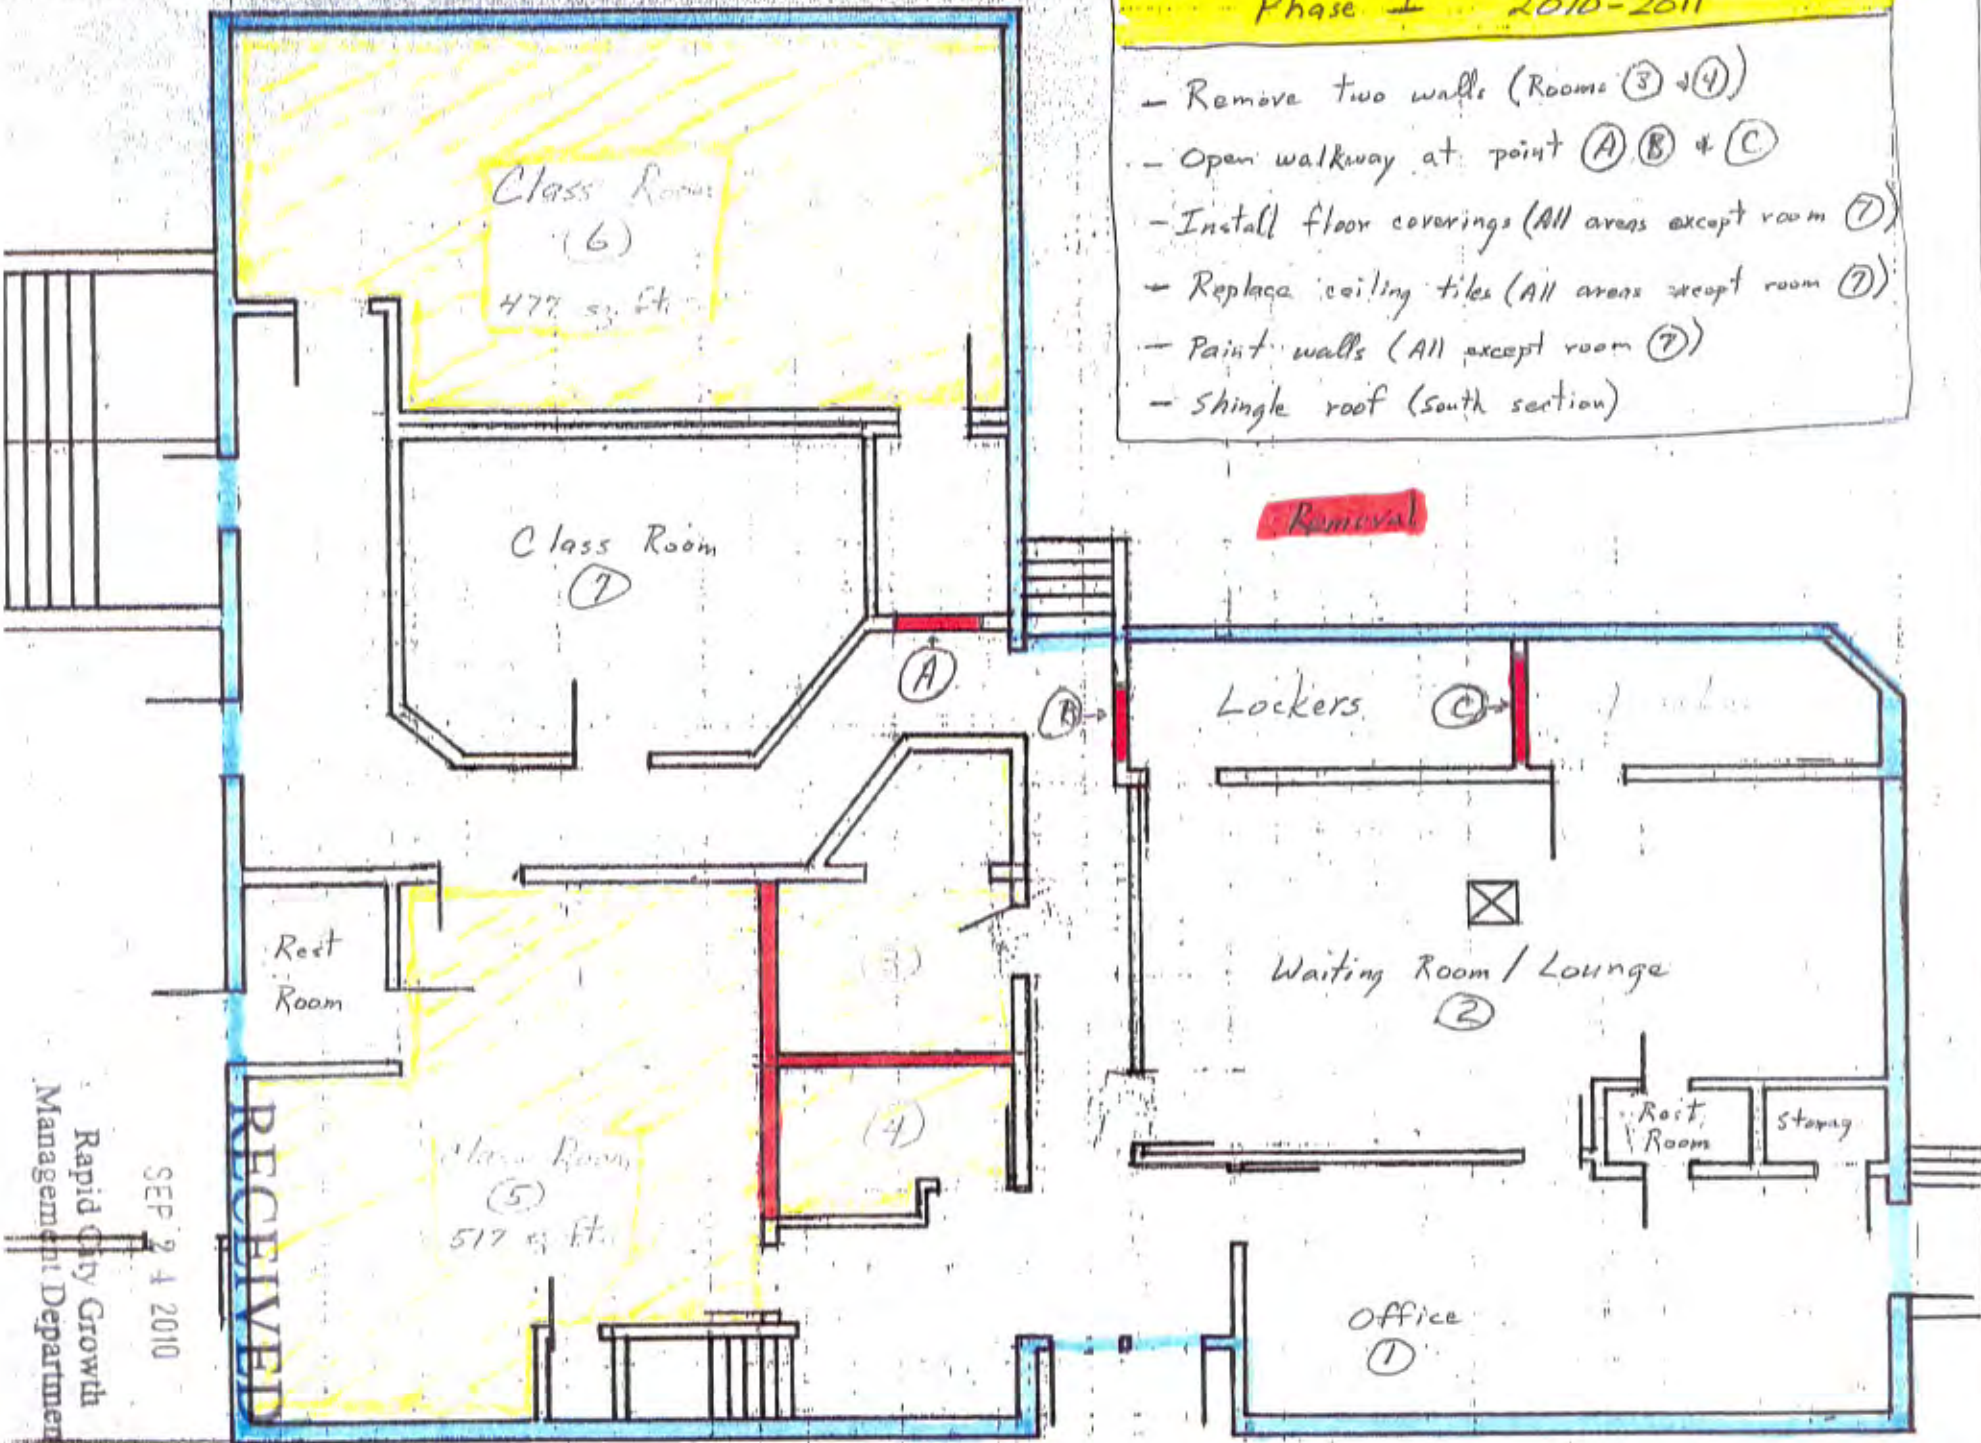 Phase I 2010-2011
- Remove two walls (Rooms ③ & ④)
- Open walkway at point Ⓐ Ⓑ & Ⓒ
- Install floor coverings (All areas except room ⑦)
- Replace ceiling tiles (All areas except room ⑦)
- Paint walls (All except room ⑦)
- Shingle roof (South section)
Removal
Class Room
(6)
477 sq ft.
Class Room
⑦
Ⓐ
Ⓑ
Lockers
Ⓒ
Rest
Room
(3)
(4)
Class Room
⑤
517 sq ft.
Waiting Room / Lounge
②
Rest
Room
Storag
Office
①
RECEIVED
SEP 24 2010
Rapid City Growth
Management Departmen